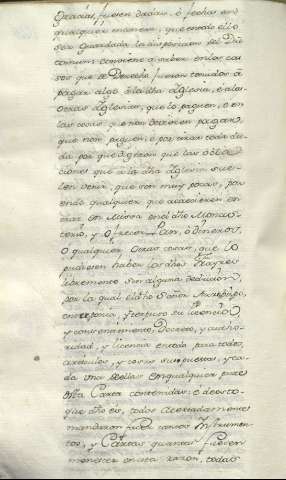 Gracias, fuesen dadas, ò fechas en
qualquier manera, que en todo ello
sea guardada la disposicion del Dro
comun: conviene à saber en los ca-
sos que de Derecho fueren tenudos à
pagar algo à la dha Iglesia, è à las
otras Iglesias, que lo paguen, è en
las cosas que no debieren pagar,
que non paguen, è por tirar toda du-
da por que dixeron que las obla-
ciones que à la dha Iglesia sue-
len venir, que son muy pocas, por
ende qualquier que acaesciere en-
trar en Missa en el dho Monas-
terio, y ofrecer Pan, ò Dineros,
ò qualquier otras cosas, que lo
pudiesen haber los dhos Frayres
libremente sin alguna deducion,
por la qual el dho Señor Arzobispo,
interpuso su licencia,
y consentimiento, Decreto, y autho-
ridad, y licencia en todo para todos,
articulos, y cosas suso puestas, y ca-
da una dellas en qualquier parte
esta Carta contenidas: è desto
que dho es, todos acordadamente
mandaron facer tantos Instrumen-
tos, y Cartas quantas fuesen
menester en esta razon, todas